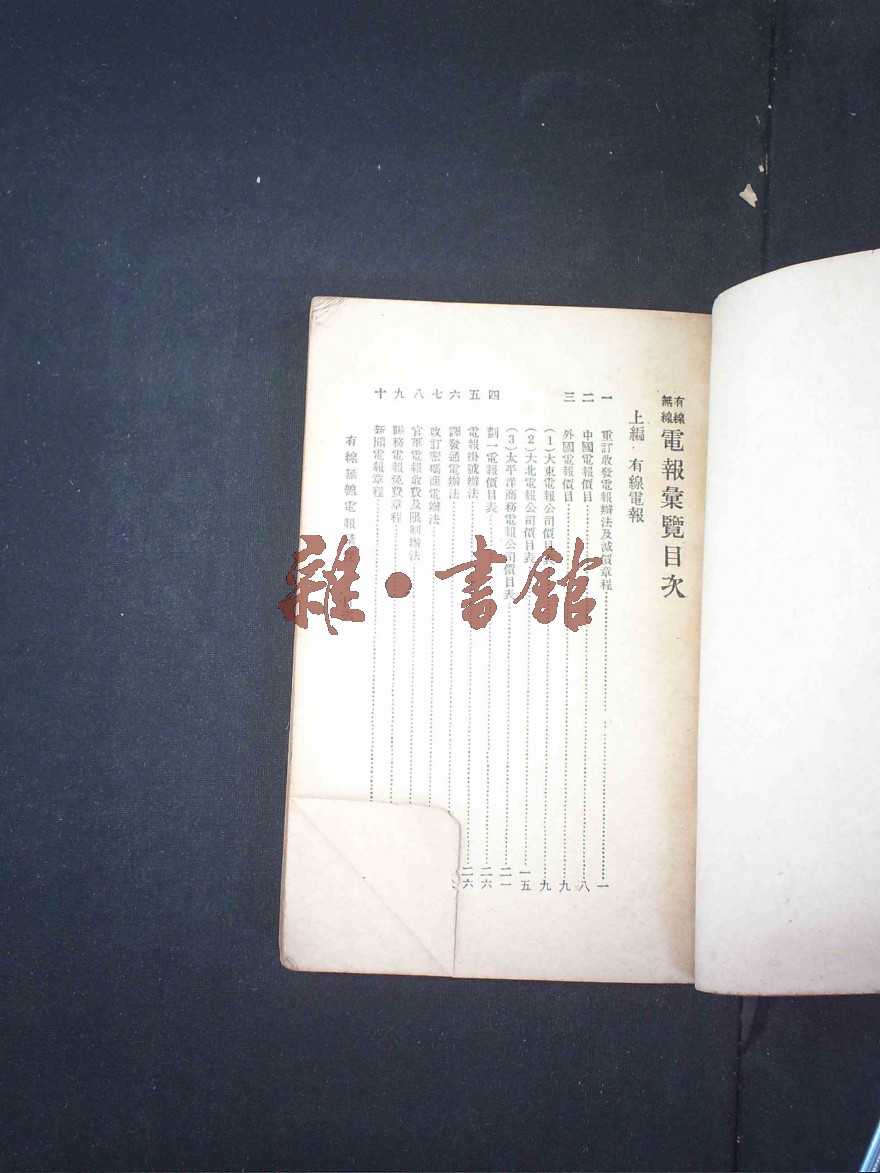 有線無線電報彙覽目次
上編 · 有線電報
一 重訂收發電報辦法及減價章程 一
二 中國電報價目 八
三 外國電報價目 九
(1)大東電報公司價目表 九
(2)大北電報公司價目表 一五
(3)太平洋商務電報公司價目表 二一
四 劃一電報價目表 二六
五 電報掛號辦法 二六
六 譯發通電辦法
七 改訂密碼商電辦法
八 官軍電報收費及限制辦法
九 賑務電報免費章程
十 新聞電報章程
有線無線電報彙
雜·書館